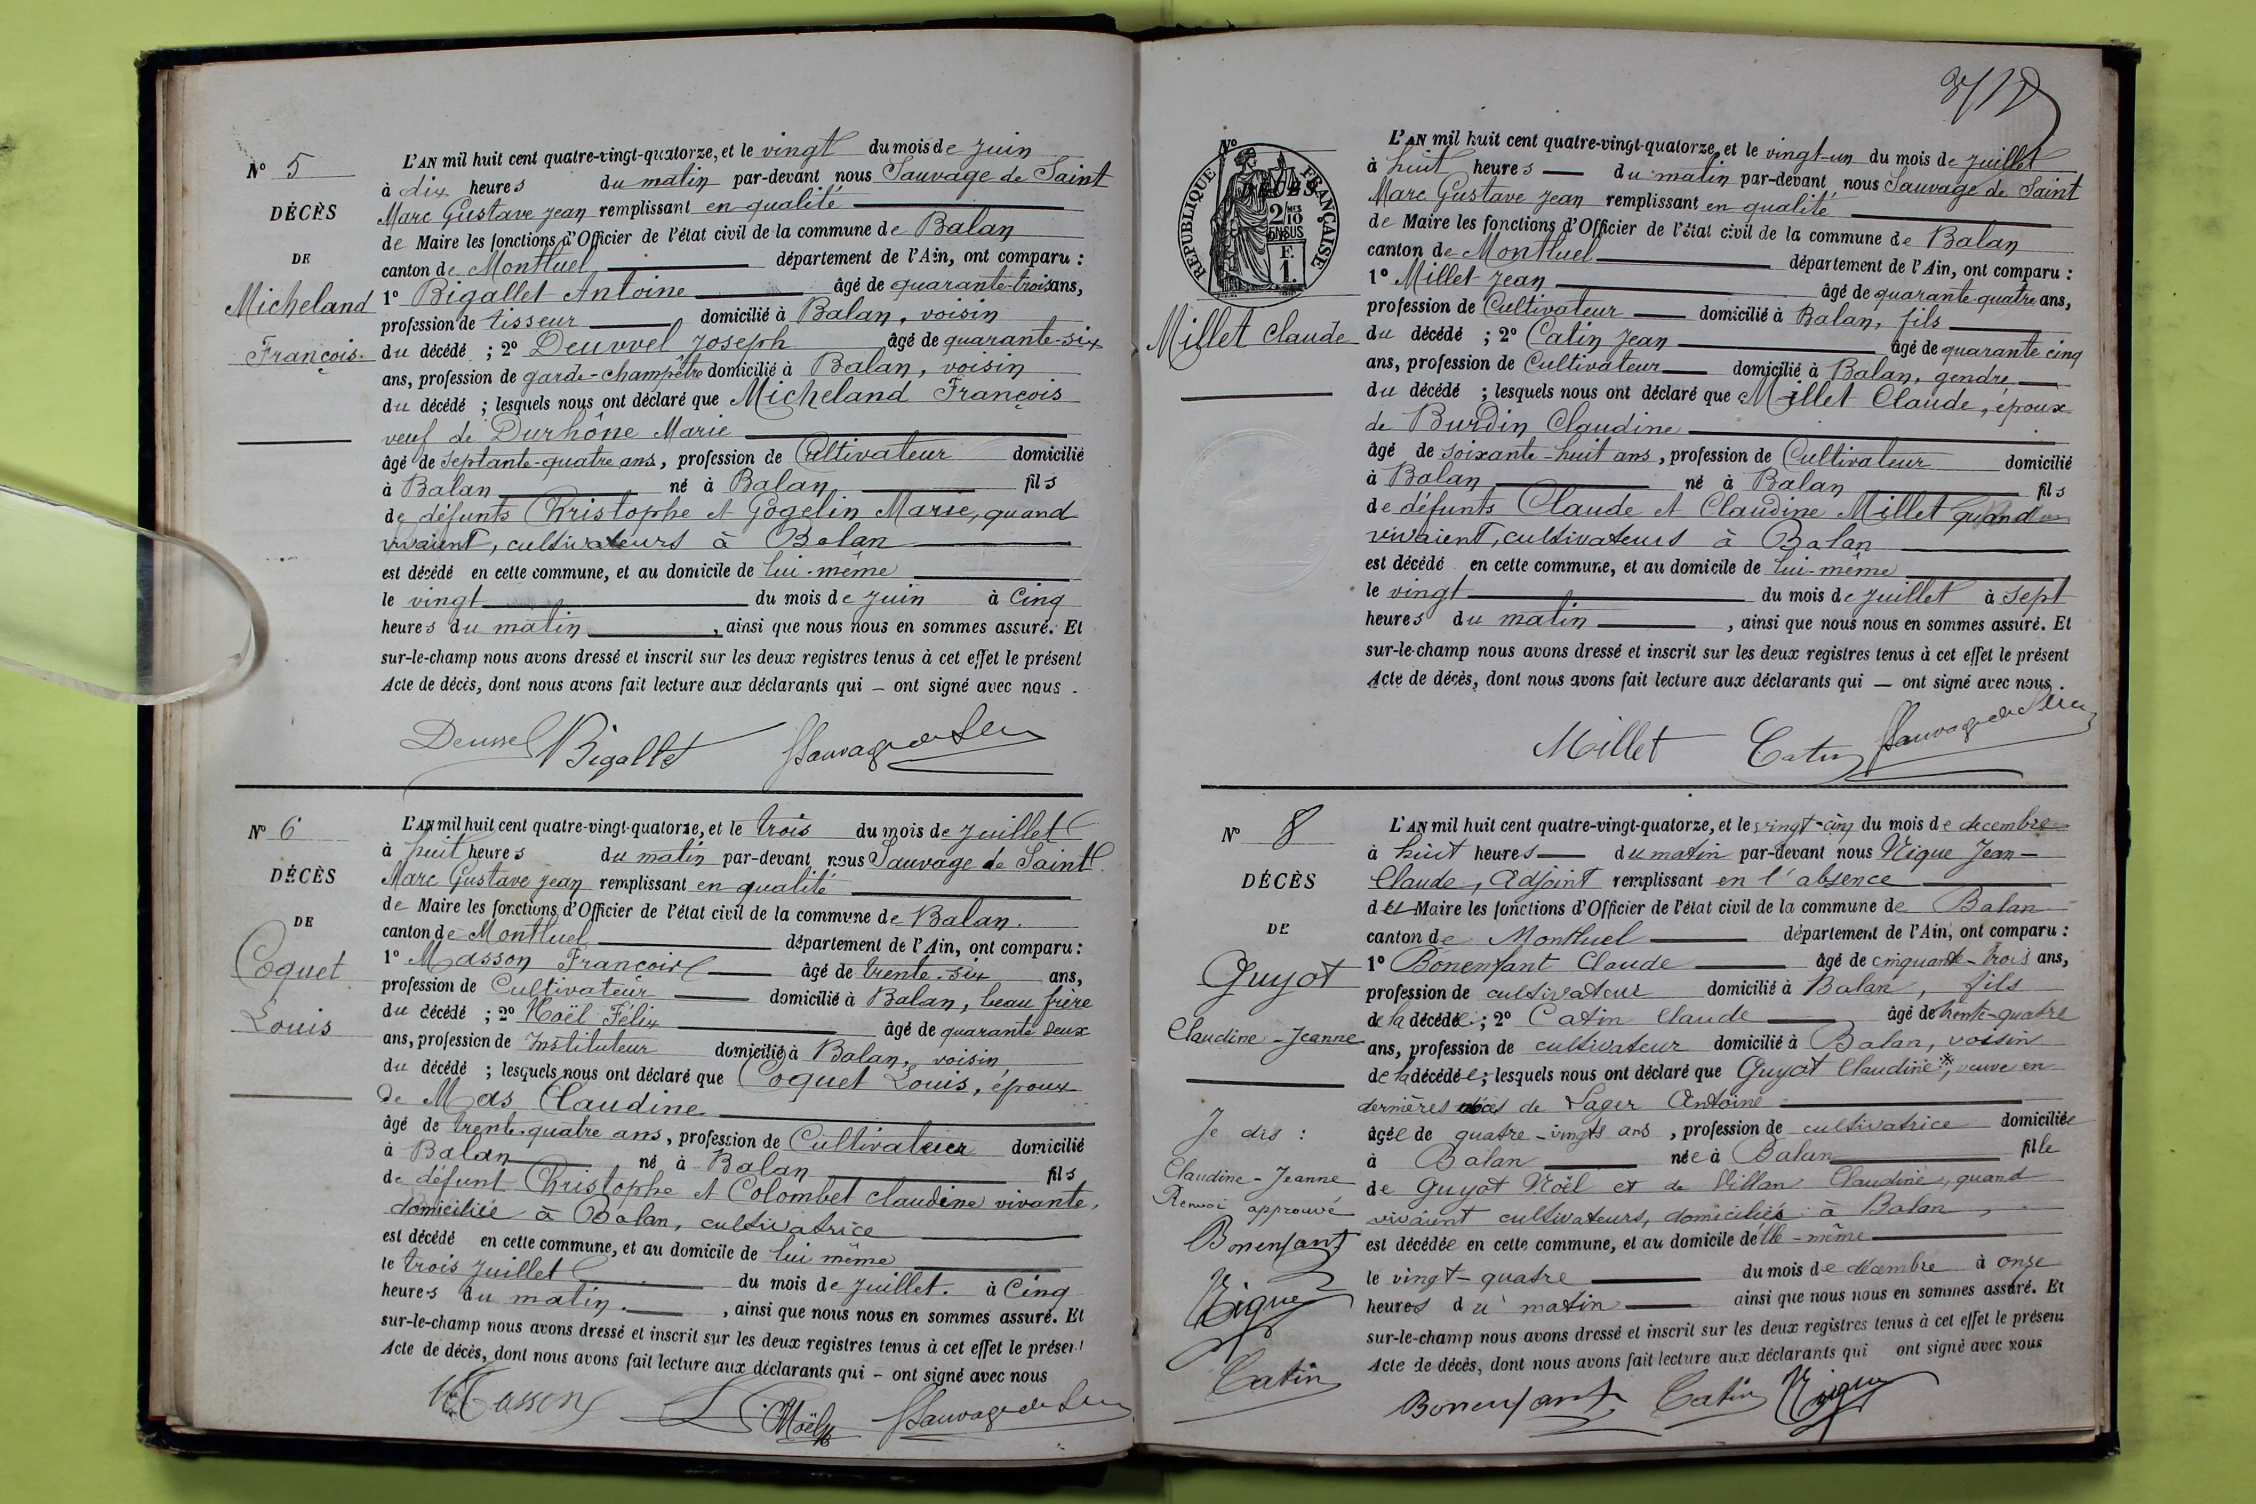 N° 5
DÉCÈS
DE
Micheland
François.
L'AN mil huit cent quatre-vingt-quatorze, et le vingt du mois de juin
à dix heures du matin par-devant nous Sauvage de Saint
Marc Gustave Jean remplissant en qualité
de Maire les fonctions d'Officier de l'état civil de la commune de Balan
canton de Montluel département de l'Ain, ont comparu :
1° Bigallet Antoine âgé de quarante-trois ans,
profession de tisseur domicilié à Balan, voisin
du décédé ; 2° Deuvvel Joseph âgé de quarante-six
ans, profession de garde-champêtre domicilié à Balan, voisin
du décédé ; lesquels nous ont déclaré que Micheland François
veuf de Durhône Marie
âgé de septante-quatre ans, profession de Cultivateur domicilié
à Balan né à Balan fils
de défunts Christophe et Gogelin Marie, quand
vivaient, cultivateurs à Balan
est décédé en cette commune, et au domicile de lui-même
le vingt du mois de juin à cinq
heures du matin, ainsi que nous nous en sommes assuré. Et
sur-le-champ nous avons dressé et inscrit sur les deux registres tenus à cet effet le présent
Acte de décès, dont nous avons fait lecture aux déclarants qui – ont signé avec nous.
Bigallet
N° 6
DÉCÈS
DE
Coquet
Louis
L'AN mil huit cent quatre-vingt-quatorze, et le trois du mois de juillet
à huit heures du matin par-devant nous Sauvage de Saint
Marc Gustave Jean remplissant en qualité
de Maire les fonctions d'Officier de l'état civil de la commune de Balan.
canton de Montluel département de l'Ain, ont comparu :
1° Masson François âgé de trente-six ans,
profession de Cultivateur domicilié à Balan, beau frère
du décédé ; 2° Noël Félix âgé de quarante deux
ans, profession de Instituteur domicilié à Balan, voisin
du décédé ; lesquels nous ont déclaré que Coquet Louis, époux
de Mas Claudine
âgé de trente-quatre ans, profession de Cultivateur domicilié
à Balan né à Balan fils
de défunt Christophe et Colombet Claudine vivante,
domiciliée à Balan, cultivatrice
est décédé en cette commune, et au domicile de lui même
le trois juillet du mois de juillet. à cinq
heures du matin. , ainsi que nous nous en sommes assuré. Et
sur-le-champ nous avons dressé et inscrit sur les deux registres tenus à cet effet le présent
Acte de décès, dont nous avons fait lecture aux déclarants qui – ont signé avec nous
Masson Noël
N°
RÉPUBLIQUE FRANÇAISE
2 MES 10 EN SUS
F. 1.
Millet Claude
L'AN mil huit cent quatre-vingt-quatorze, et le vingt-un du mois de juillet
à huit heures du matin par-devant nous Sauvage de Saint
Marc Gustave Jean remplissant en qualité
de Maire les fonctions d'Officier de l'état civil de la commune de Balan
canton de Montluel département de l'Ain, ont comparu :
1° Millet Jean âgé de quarante-quatre ans,
profession de Cultivateur domicilié à Balan, fils
du décédé ; 2° Catin Jean âgé de quarante cinq
ans, profession de Cultivateur domicilié à Balan, gendre
du décédé ; lesquels nous ont déclaré que Millet Claude, époux
de Burdin Claudine
âgé de soixante-huit ans, profession de Cultivateur domicilié
à Balan né à Balan fils
de défunts Claude et Claudine Millet quand
vivaient, cultivateurs à Balan
est décédé en cette commune, et au domicile de lui-même
le vingt du mois de juillet à sept
heures du matin, ainsi que nous nous en sommes assuré. Et
sur-le-champ nous avons dressé et inscrit sur les deux registres tenus à cet effet le présent
Acte de décès, dont nous avons fait lecture aux déclarants qui — ont signé avec nous.
Millet Catin
N° 8
DÉCÈS
DE
Guyot
Claudine-Jeanne
Je dis :
Claudine-Jeanne
Renvoi approuvé
Bonenfant
Nique
Catin
L'AN mil huit cent quatre-vingt-quatorze, et le vingt-cinq du mois de decembre
à huit heures du matin par-devant nous Nique Jean-
Claude, Adjoint remplissant en l'absence
du Maire les fonctions d'Officier de l'état civil de la commune de Balan
canton de Montluel département de l'Ain, ont comparu :
1° Bonenfant Claude âgé de cinquante-trois ans,
profession de cultivateur domicilié à Balan, fils
de la décédée ; 2° Catin Claude âgé de trente-quatre
ans, profession de cultivateur domicilié à Balan, voisin
de la décédée ; lesquels nous ont déclaré que Guyot Claudine*, veuve en
dernières noces de Sager Antoine
âgée de quatre-vingts ans, profession de cultivatrice domiciliée
à Balan née à Balan fille
de Guyot Noël et de Villan Claudine, quand
vivaient cultivateurs, domiciliés à Balan,
est décédée en cette commune, et au domicile d'elle-même
le vingt-quatre du mois de décembre à onze
heures du matin ainsi que nous nous en sommes assuré. Et
sur-le-champ nous avons dressé et inscrit sur les deux registres tenus à cet effet le présent
Acte de décès, dont nous avons fait lecture aux déclarants qui ont signé avec nous
Bonenfant Catin Nique